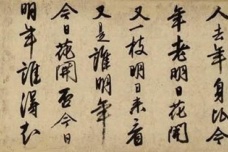 人去年身比今
年老明日花開
又一枝明日来看
又是誰明年
今日花開否今日
明年誰得知